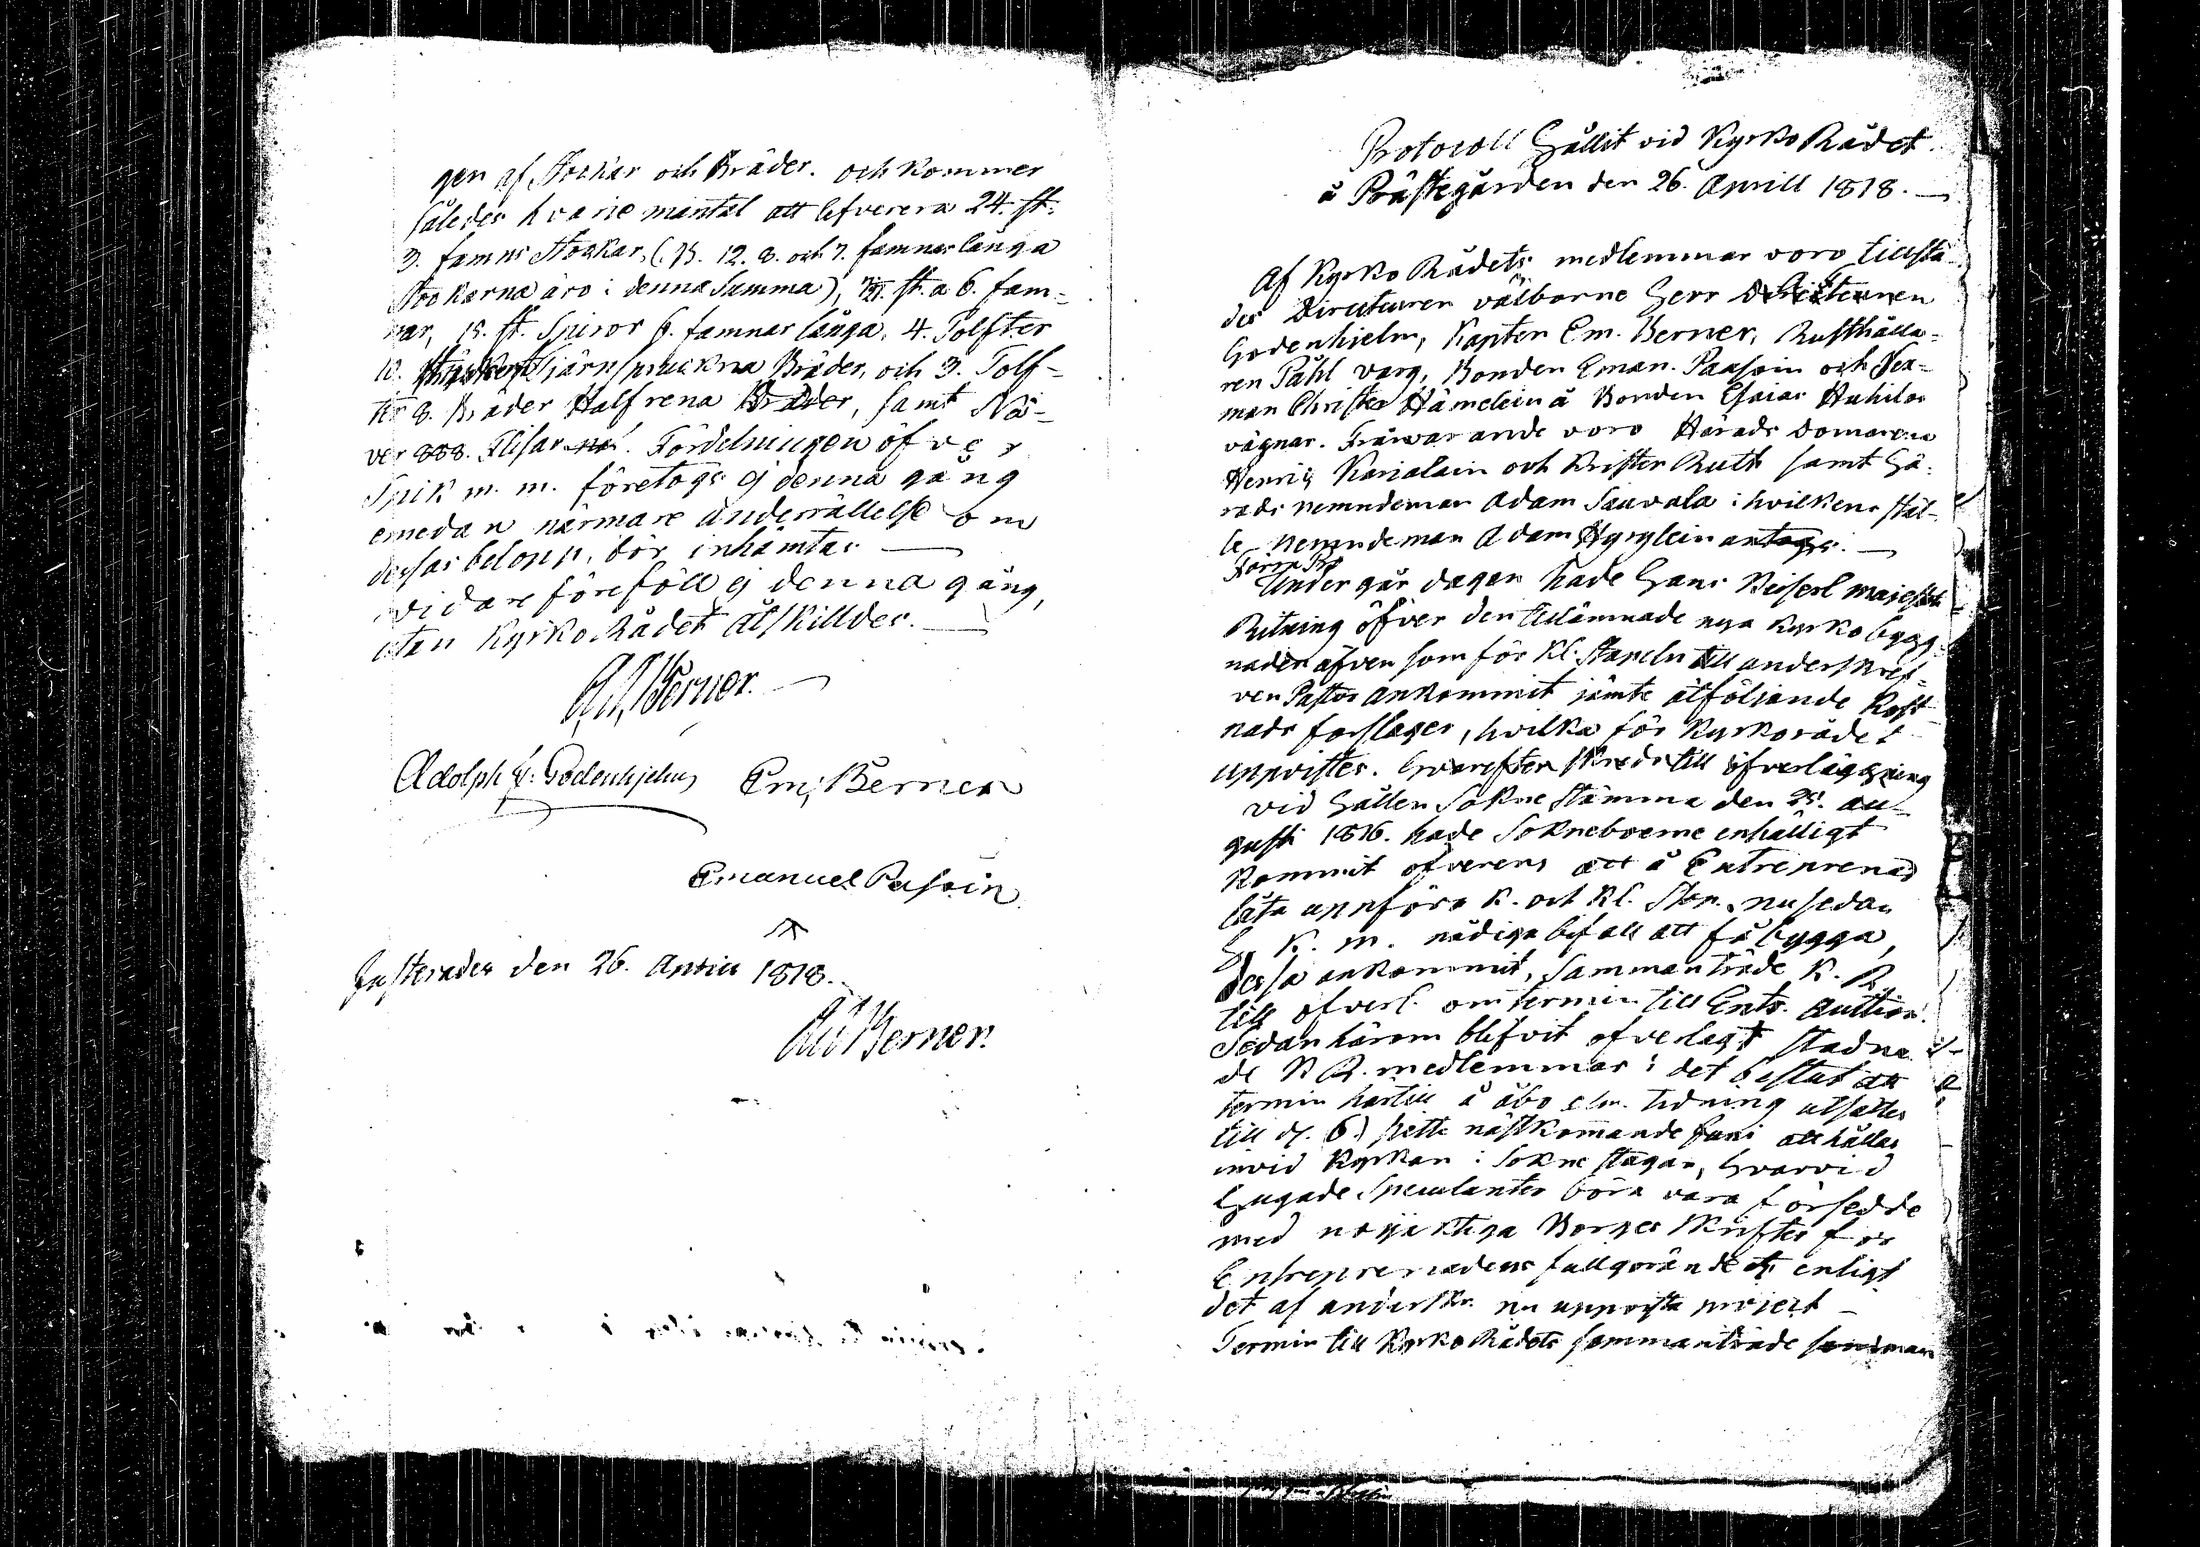 gen af Stockar och Bräder. och kommer
således hvarje mantal att lefverera 24. st.
3. famns Stockar, (13. 12. 8. och 7. famnar långa
Stockarna äro i denna Summa), st. a 6. fam-
nar, 15. st. Spiror 6. famnar långa, 4. Tolfter
10. Tjärnspruckna Bräder, och 3. Tolf-
ter 8. Bräder Halfrena Bräder, samt Nä-
ver 888. Flisar. Fördelningen öfver
Spik m. m. företogs ej denna gång
emedan närmare underrättelse om
dessas belopp, bör inhämtas
vidare föreföll ej denna gång,
utan KyrkoRådet åtskilldes.
Berner.
Adolph Godenhjelm Em. Berner
Emanuel Pasoin
Justerades den 26. Aprill 1818.
Berner.
Protocoll Hållit vid KyrkoRådet
å Prästegården den 26. Aprill 1818.
Af KyrkoRådets medlemmar voro tillstä-
des Directeuren välborne Herr Directeuren
Godenhjelm, Kapten Em. Berner, Rusthålla-
ren Påhl varg, Bonden Eman. Paasoin och Sex-
man Christer Hämelein å Bonden Esaias Huhilas
vägnar. Frånvarande voro Härads Domarena
Henric Karjalain och Krister Ruth samt Hä-
rads nemndeman Adam Sauvala i hvilkens stäl-
le nemndeman Adam Hyrylein antogs.
Under går dagen hade Hans Keiserl majestäts
Ritning öfver den tillämnade nya Kyrko bygg-
naden äfven som för Kl. Stapeln till underskref-
ven Pastor ankommit jämte åtföljande Kost-
nads forslager, hvilka för Kyrkorådet
uppvistes. Hvarefter skreds till öfverläggning
vid Hållen Sokne Stämma den 25. Au-
gusti 1816. hade Sokneboerne enhälligt
kommit öfverens att å Entreprenad
låta uppföra K. och Kl. Stap. nu sedan
H K. M. nådiga bifall att få bygga,
dessa ankommit, Sammanträde K. R.
till öfverl. om termin till Entr. Auction.
Sedan härom blifvit öfverlagt stadna-
de K R. medlemmar i det beslut att
termin härtill å åbo tidning utsättes
till d. 6) sjette nästkommande Juni att hållas
invid Kyrkan i Sokne stugan, Hvarvid
Hugade Speculanter böra vara försedde
med nöjaktiga Borges skrifter för
Entreprenadens fullgörandet enligt
det af underskr. nu uppvista project
Termin till KyrkoRådets sammanträde